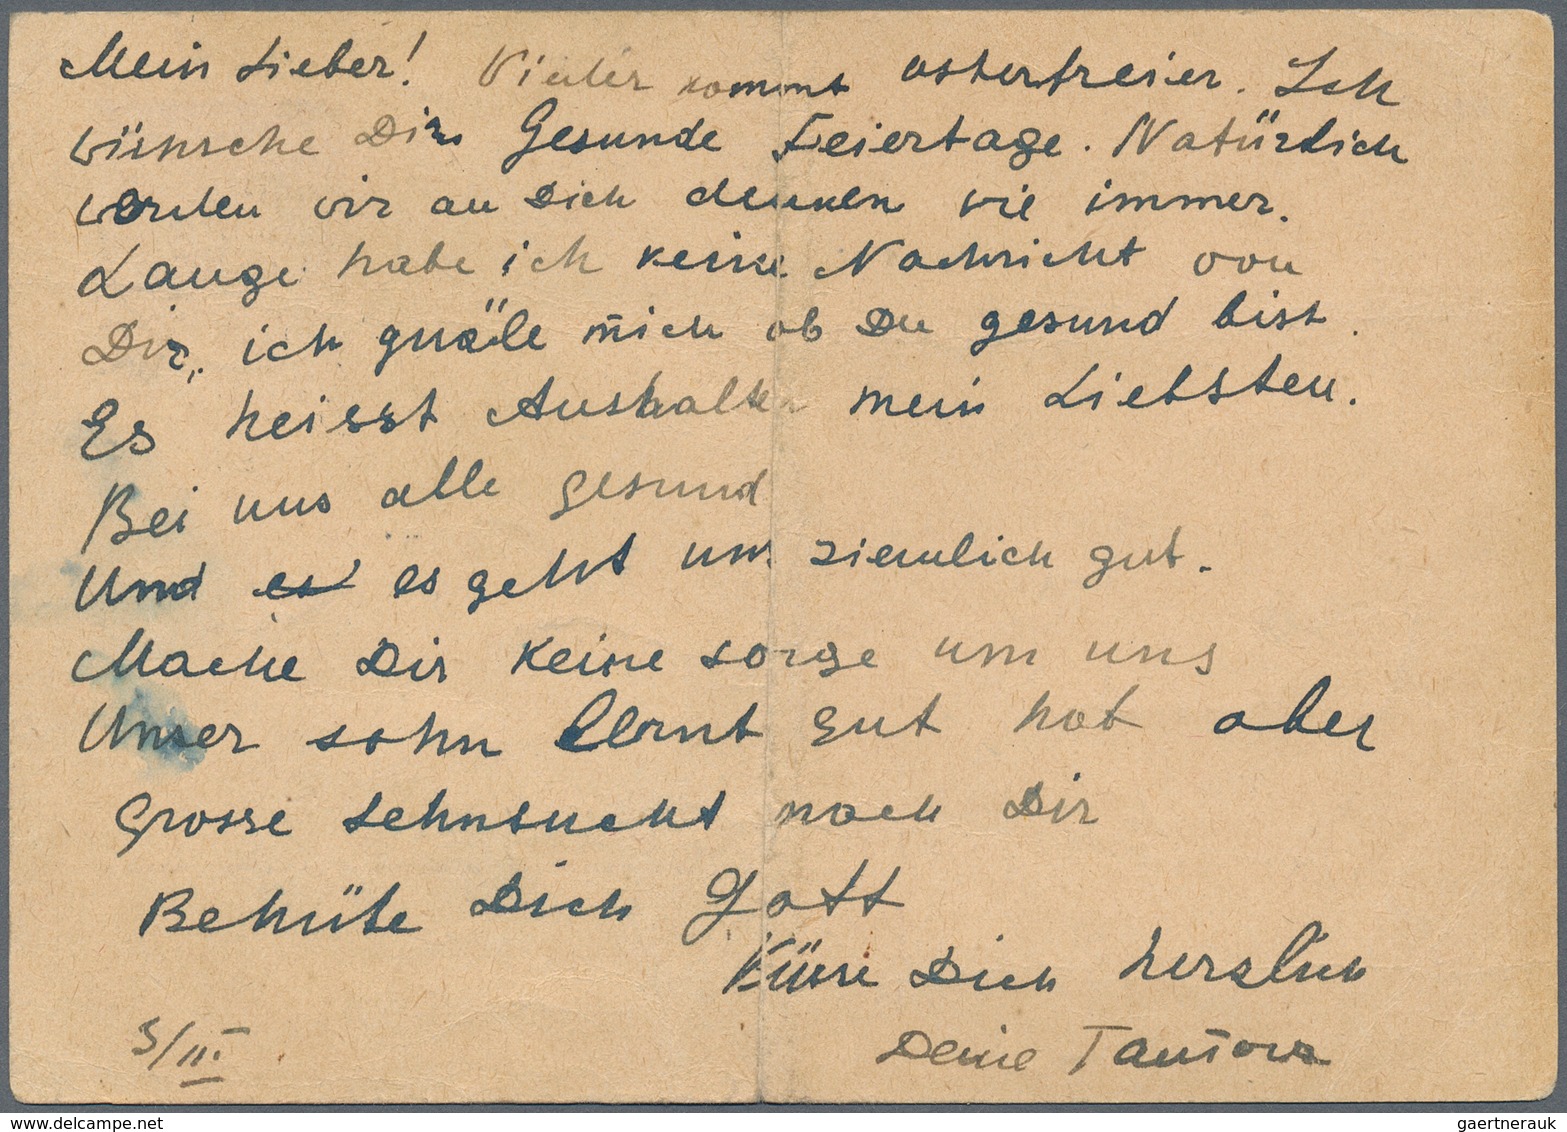 Mein Lieber! Wieder kommt osterfreier. Ich
wünsche Dir Gesunde Feiertage. Natürlich
werden wir an Dich denken wie immer.
Lange habe ich keine Nachricht von
Dir, ich quäle mich ob Du gesund bist.
Es heisst Aushalten mein Liebsten.
Bei uns alle gesund
Und es es geht uns ziemlich gut.
Mache Dir keine sorge um uns
Unser sohn lernt gut hat aber
Grosse sehnsucht nach Dir
Behüte Dich Gott
Küsse Dich herzlich
5/III
Deine
www.delcampe.net
gaertnerauk